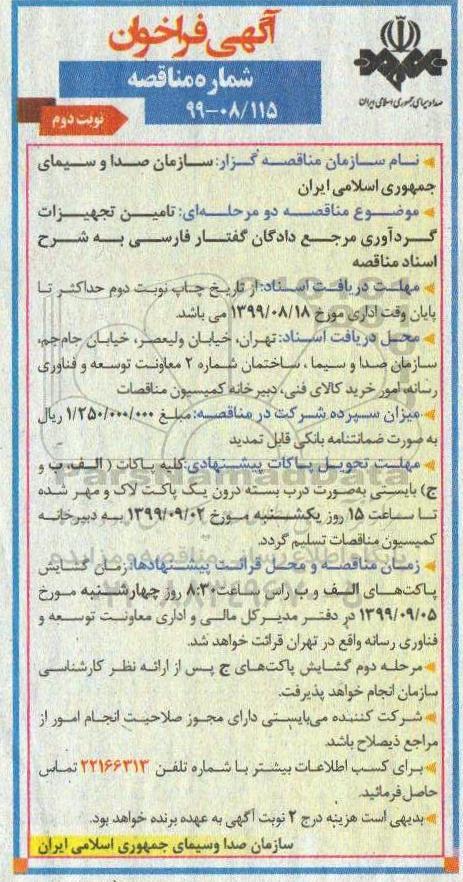 آگهی فراخوان
شماره مناقصه
۹۹-۰۸/۱۱۵
نوبت دوم
صدا و سیمای جمهوری اسلامی ایران
نام سازمان مناقصه گزار: سازمان صدا و سیمای
جمهوری اسلامی ایران
موضوع مناقصه دو مرحله‌ای: تامین تجهیزات
گردآوری مرجع دادگان گفتار فارسی به شرح
اسناد مناقصه
مهلت دریافت اسناد: از تاریخ چاپ نوبت دوم حداکثر تا
پایان وقت اداری مورخ ۱۳۹۹/۰۸/۱۸ می باشد.
محل دریافت اسناد: تهران، خیابان ولیعصر، خیابان جام‌جم،
سازمان صدا و سیما، ساختمان شماره ۲ معاونت توسعه و فناوری
رسانه، امور خرید کالای فنی، دبیرخانه کمیسیون مناقصات
میزان سپرده شرکت در مناقصه: مبلغ ۱/۲۵۰/۰۰۰/۰۰۰ ریال
به صورت ضمانتنامه بانکی قابل تمدید
مهلت تحویل پاکات پیشنهادی: کلیه پاکات (الف، ب و
ج) بایستی به‌صورت درب بسته درون یک پاکت لاک و مهر شده
تا ساعت ۱۵ روز یکشنبه مورخ ۱۳۹۹/۰۹/۰۲ به دبیرخانه
کمیسیون مناقصات تسلیم گردد.
زمان مناقصه و محل قرائت پیشنهادها: زمان گشایش
پاکت‌های الف و ب راس ساعت ۸:۳۰ روز چهارشنبه مورخ
۱۳۹۹/۰۹/۰۵ در دفتر مدیرکل مالی و اداری معاونت توسعه و
فناوری رسانه واقع در تهران قرائت خواهد شد.
مرحله دوم گشایش پاکت‌های ج پس از ارائه نظر کارشناسی
سازمان انجام خواهد پذیرفت.
شرکت کننده می‌بایستی دارای مجوز صلاحیت انجام امور از
مراجع ذیصلاح باشد.
برای کسب اطلاعات بیشتر با شماره تلفن ۲۲۱۶۶۳۱۳ تماس
حاصل فرمائید.
بدیهی است هزینه درج ۲ نوبت آگهی به عهده برنده خواهد بود.
سازمان صدا وسیمای جمهوری اسلامی ایران
ParsNamadData